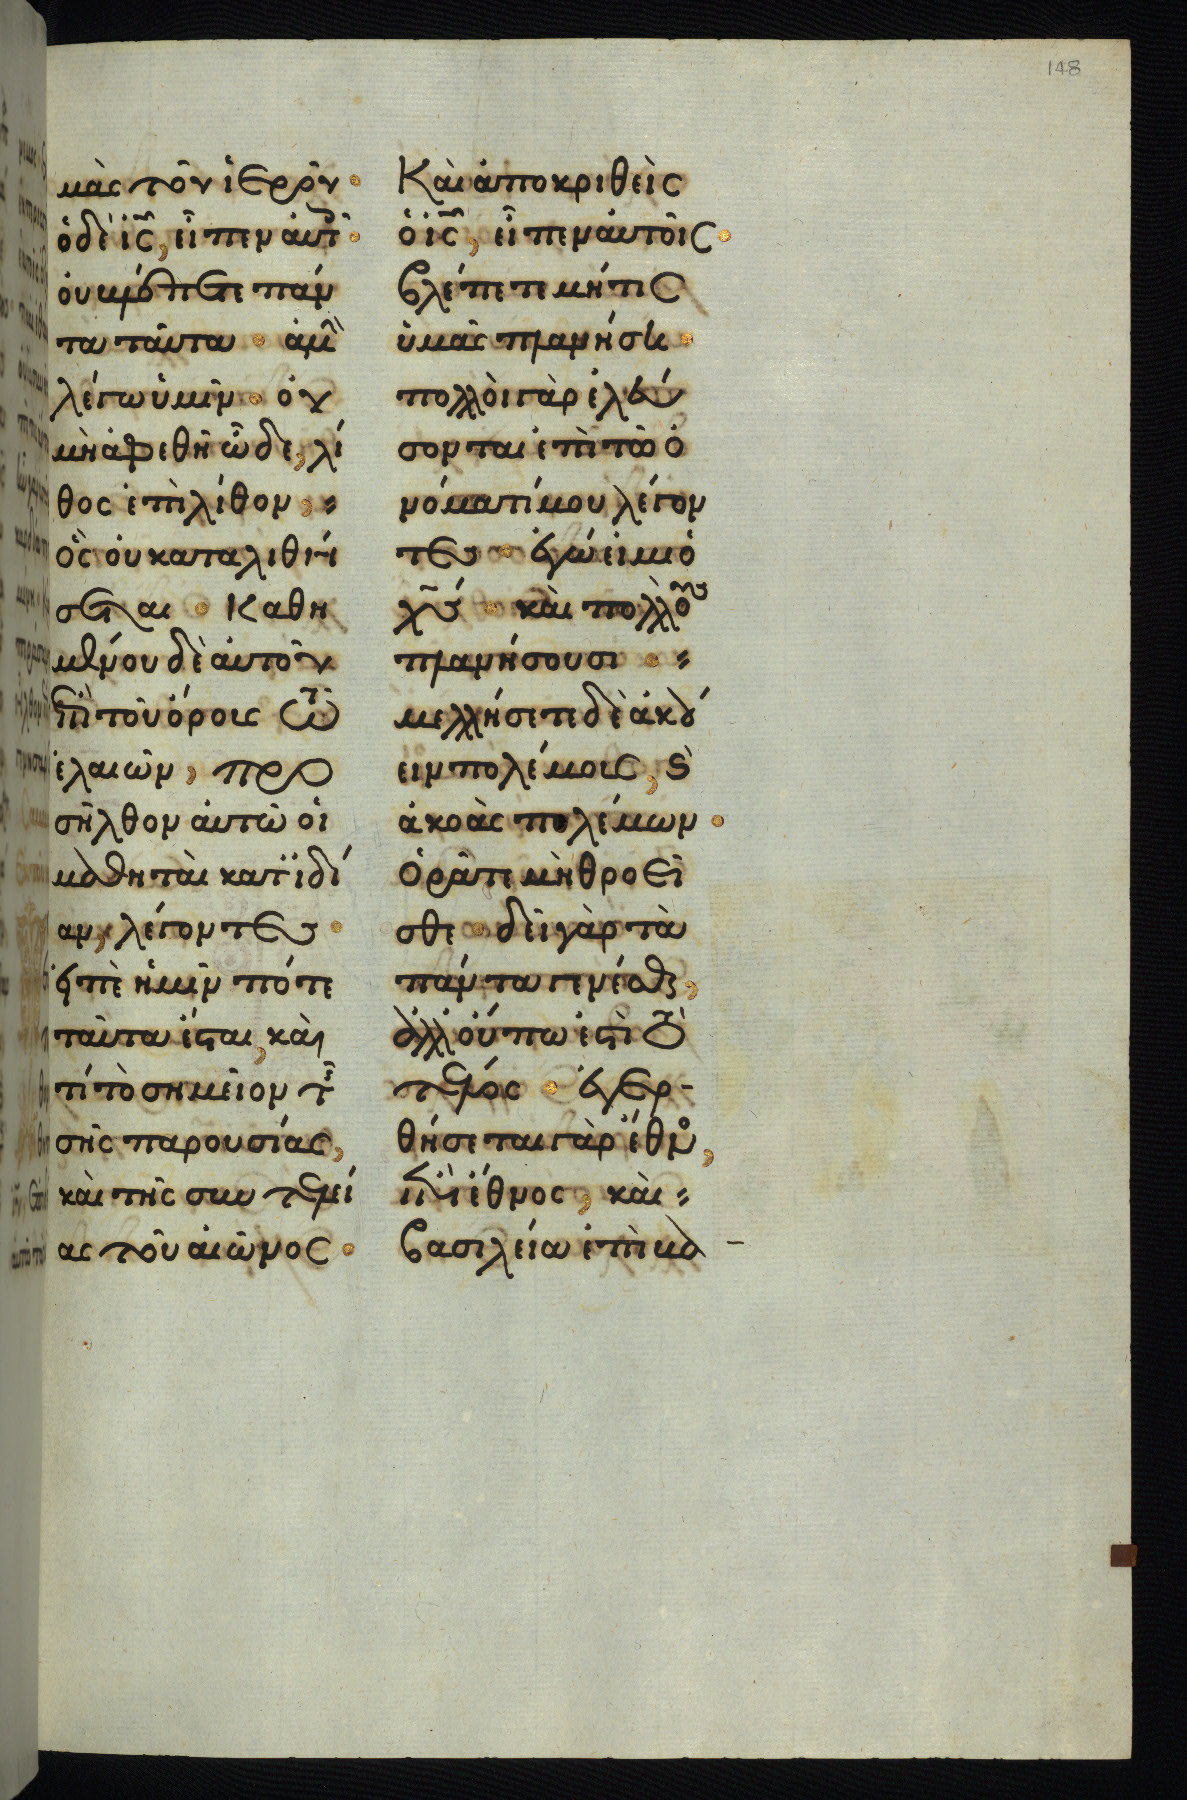 148
μὰς τοῦ ἱεροῦ·
ὁ δὲ ἰς̅, εἶπεν αὐτοῖς·
οὐ βλέπετε πάν
τα ταῦτα · ἀμὴν
λέγω ὑμῖν · οὐ
μὴ ἀφεθῆ ὧδε, λί
θος ἐπὶ λίθον,
ὃς οὐ καταλιθή
σεται · Καθη
μένου δὲ αὐτοῦ
ἐπὶ τοῦ ὄρους τῶν
ἐλαιῶν, προ
σῆλθον αὐτῶ οἱ
μαθηταὶ κατϊδί
αν, λέγοντες ·
εἰπὲ ἡμῖν πότε
ταῦτα ἔσται, καὶ
τί τὸ σημεῖον τῆς
σῆς παρουσίας,
καὶ τῆς συντελεί
ας τοῦ αἰῶνος ·
Καὶ ἀποκριθεὶς
ὁ ἰς̅, εἶπεν αὐτοῖς ·
βλέπετε μήτις
ὑμᾶς πλανήση ·
πολλοὶ γὰρ ἐλεύ
σονται ἐπὶ τῶ ὀ
νόματί μου λέγον
τες · ἐγώ εἰμι ὁ
χς̅ · καὶ πολλοὺς
πλανήσουσι ·
μελλήσετε δὲ ἀκού
ειν πολέμους, καὶ
ἀκοὰς πολέμων ·
Ὁρᾶτε μὴ θροεῖ
σθε · δεῖ γὰρ τὰ
πάντα γενέσθαι,
ἀλλ' οὔπω ἐστὶ τὸ
τέλος · ἐγερ-
θήσεται γὰρ ἔθνος,
ἐπὶ ἔθνος, καὶ
βασιλεία ἐπὶ βα -